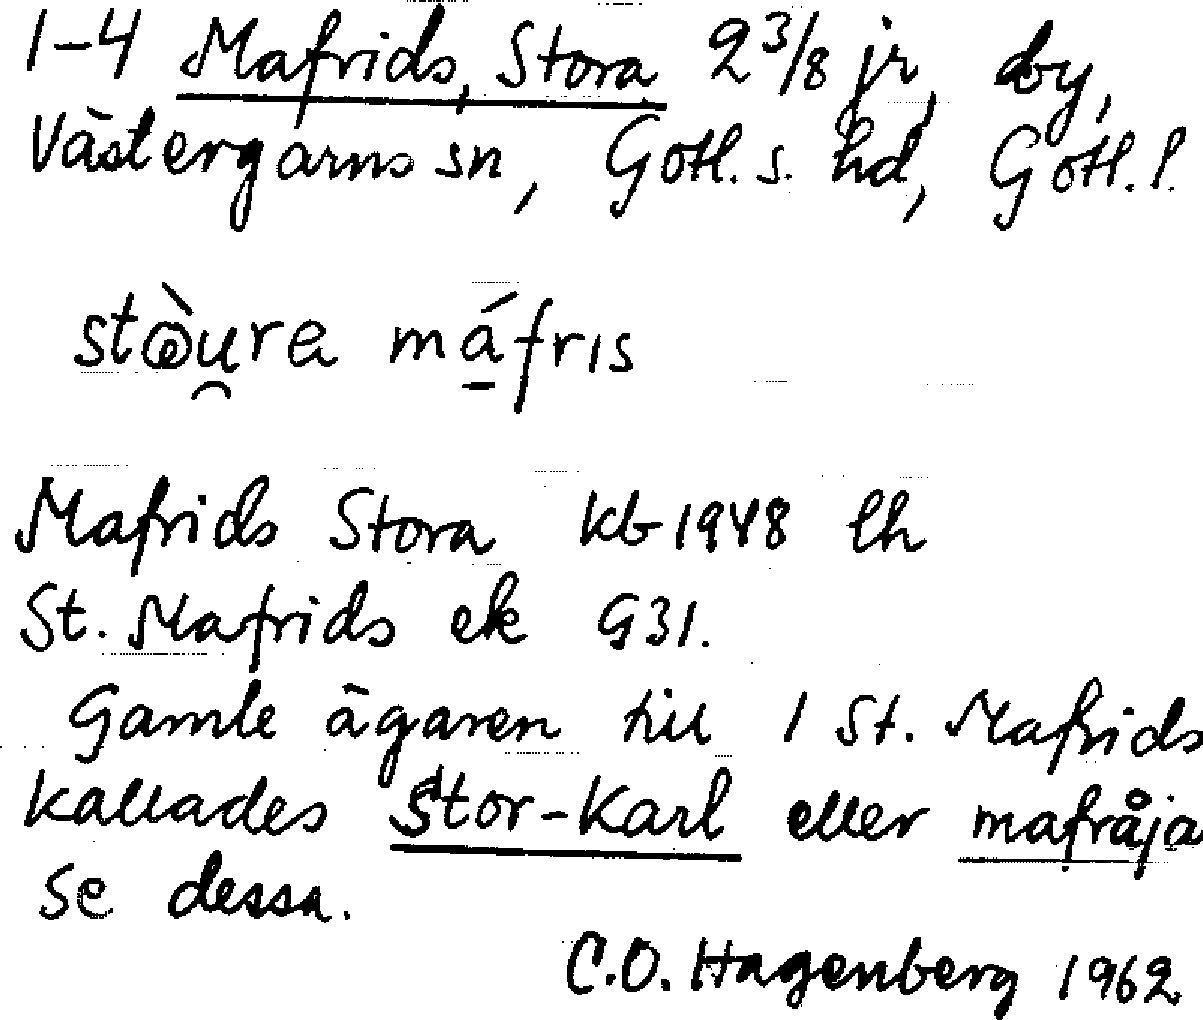 1-4 Mafrids, Stora 2 3/8 jr, by,
Västergarns sn, Gotl. s. hd, Gotl. l.
máfris
Mafrids Stora kb 1948 lh
St. Mafrids ek G31.
Gamle ägaren till 1 St. Mafrids
kallades Stor-Karl eller mafråja
se dessa.
C.O. Hagenberg 1962